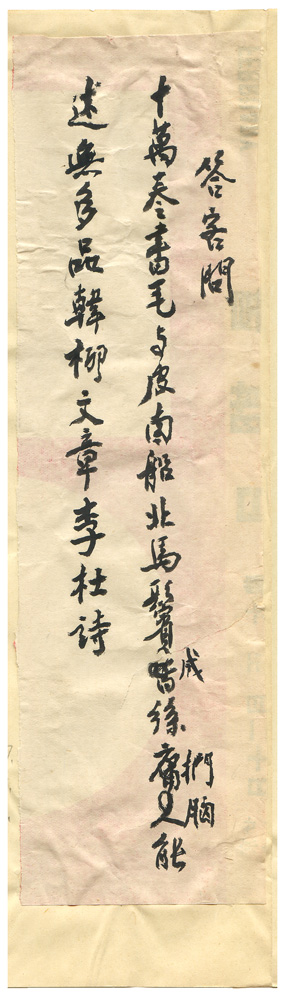 答客問
十萬卷書毛与皮南船北馬鬢絲能
成
捫胸
述無多品韓柳文章李杜詩